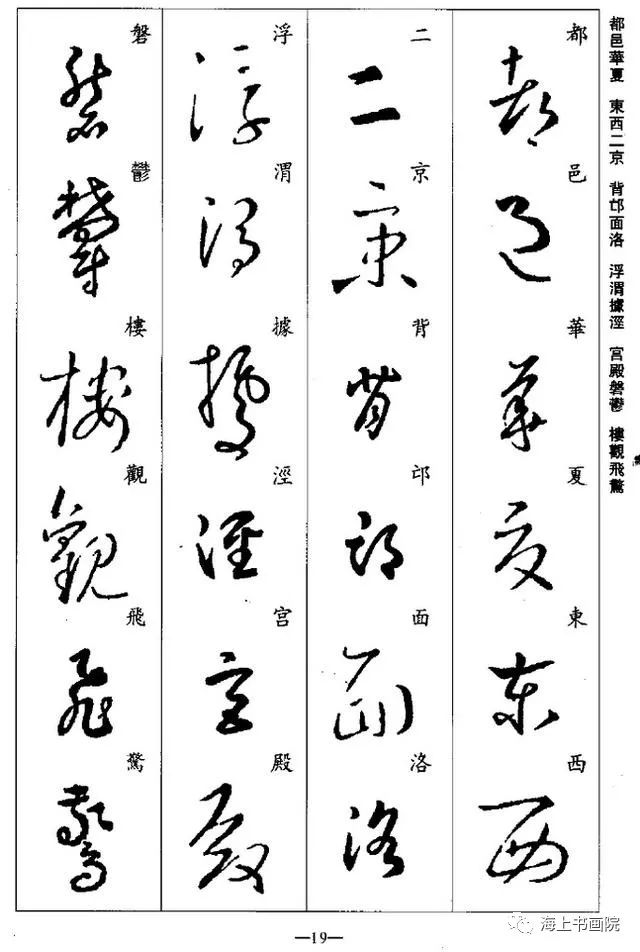 都邑華夏 東西二京 背邙面洛 浮渭據涇 宮殿磐鬱 樓觀飛驚
都邑華夏東西
二京背邙面洛
浮渭據涇宮殿
磐鬱樓觀飛驚
—19—
海上书画院